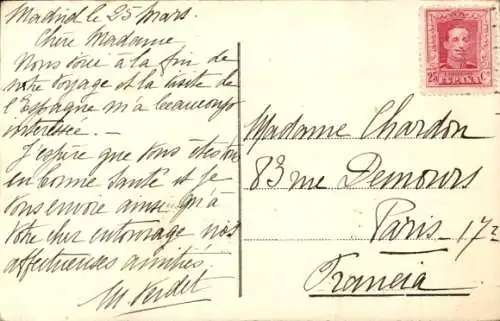 Madrid le 25 Mars.
Chère Madame
Nous voici à la fin de
notre voyage et la visite de
l'Espagne m'a beaucoup
intéressée. —
J'espère que vous êtes
en bonne santé et je
vous envoie ainsi qu'à
votre cher entourage nos
affectueuses amitiés.
M. Verdet
25 Cs
ESPAÑA
Madame Chardon
83 rue Demours
Paris - 17e
Francia